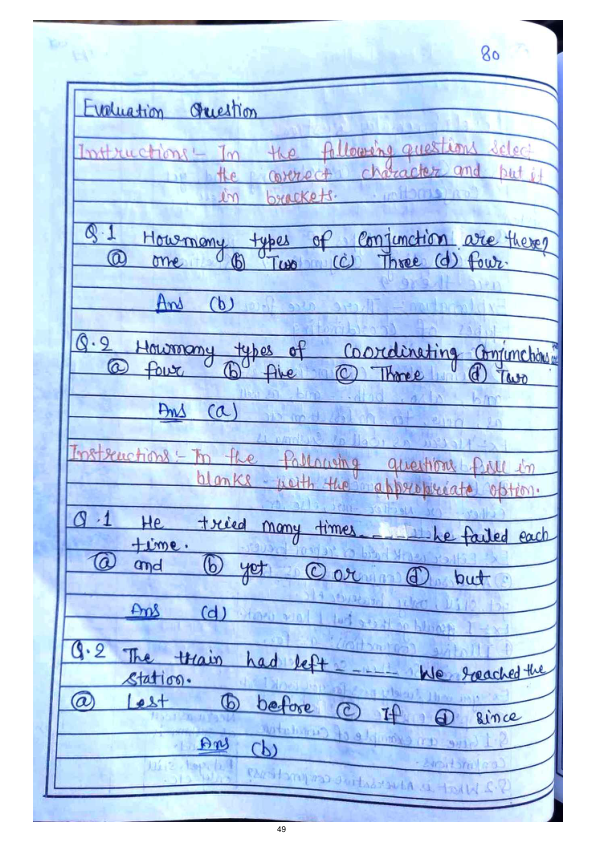 80
Evaluation Question
Instructions:- In the following questions select
the correct character and put it
in brackets.
Q.1 Howmany types of Conjunction are there?
(a) one (b) Two (c) Three (d) four.
Ans (b)
Q.2 Howmany types of Coordinating Conjunctions
(a) four (b) five (c) Three (d) Two
Ans (a)
Instructions:- In the following questions fill in
blanks with the appropriate option.
Q.1 He tried many times ------ he failed each
time.
(a) and (b) yet (c) or (d) but
Ans (d)
Q.2 The train had left ------ We reached the
station.
(a) Lest (b) before (c) If (d) since
Ans (b)
49